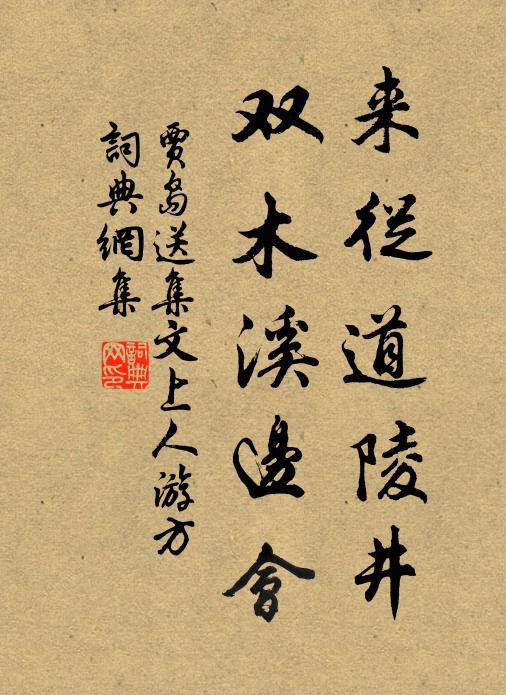 来從道陵井
双木溪邊會
賈島送集文上人游方
詞典網集
詞典网印